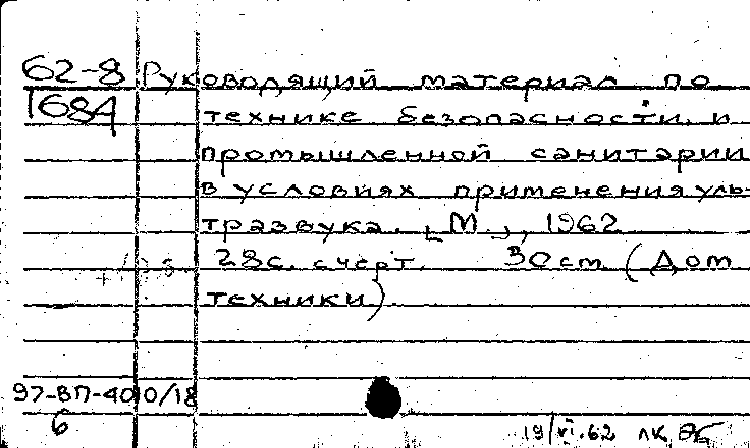 62-8 Руководящий материал по
1684 технике безопасности и
промышленной санитарии
в условиях применения уль-
тразвука. [М.], 1962
28с. с черт. 30 см (Дом
техники)
97-ВП-4010/18
6
19/VI.62 ЛК